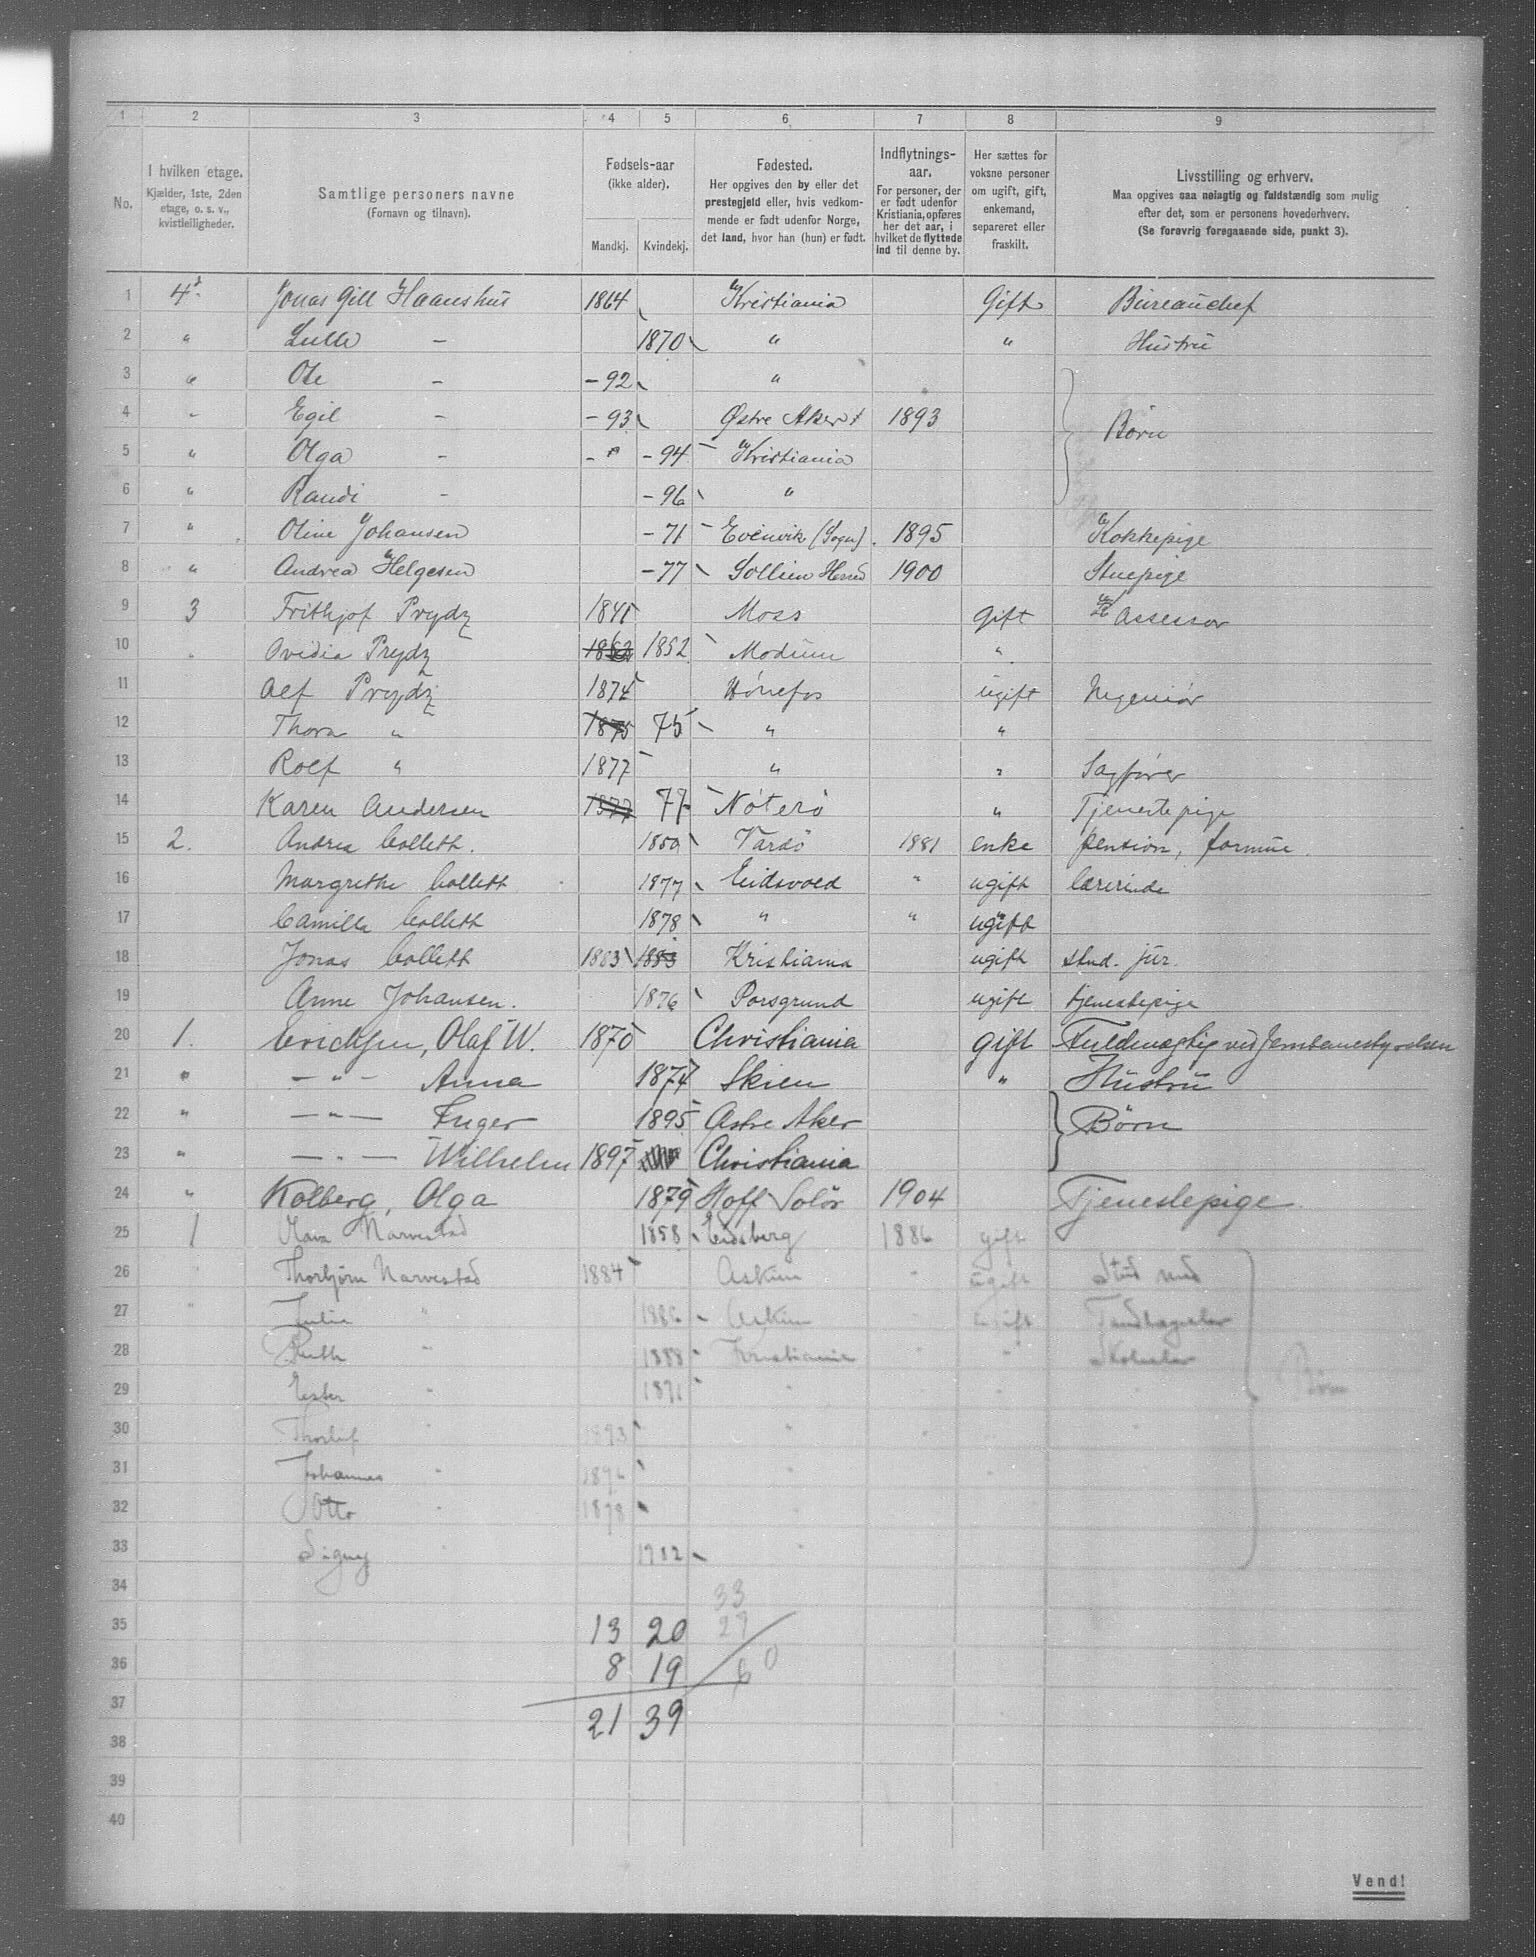 1 2 3 4 5 6 7 8 9
No.
I hvilken etage.
Kjælder, 1ste, 2den
etage, o. s. v.,
kvistleiligheder.
Samtlige personers navne
(Fornavn og tilnavn).
Fødsels-aar
(ikke alder).
Mandkj. Kvindekj.
Fødested.
Her opgives den by eller det
prestegjeld eller, hvis vedkom-
mende er født udenfor Norge,
det land, hvor han (hun) er født.
Indflytnings-
aar.
For personer, der
er født udenfor
Kristiania, opføres
her det aar, i
hvilket de flyttede
ind til denne by.
Her sættes for
voksne personer
om ugift, gift,
enkemand,
separeret eller
fraskilt.
Livsstilling og erhverv.
Maa opgives saa nøiagtig og fuldstændig som mulig
efter det, som er personens hovederhverv.
(Se forøvrig foregaaende side, punkt 3).
1 4 Jonas Gill Haanshus 1864 Kristiania Gift Bureauchef
2 " Lulle - 1870 " " Hustru
3 " - -92 "
4 - Egil - -93 Østre Aker 1893 Børn
5 " Olga - - " -94 Kristiania
6 " Randi - -96 "
7 " Oline Johansen -71 Evenvik (Sogn). 1895 Kokkepige
8 " Andrea Helgesen -77 Sollien 1900 Stuepige
9 3 Frithjof Prydz 1841 Moss gift Assessor
10 Ovidia Prydz 1852 Modum "
11 Alf Prydz 1874 Hønefos ugift Ingeniør
12 Thora " 1875 75 " "
13 Rolf " 1877 " " Sagfører
14 Karen Andersen 1877 77 Nøterø " Tjenestepige
15 2. Andrea Collett. 1850 Vardö 1881 enke pension, formue.
16 Margrethe Collett 1877 Eidsvold " ugift lærerinde
17 Camilla Collett 1878 " " ugift
18 Jonas Collett 1883 1883 Kristiania ugift stud. jur.
19 Anne Johansen. 1876 Porsgrund ugift tjenestepige
20 1. Erichsen, Olaf W. 1870 Christiania gift Fuldmægtig ved Jernbanestyrelsen
21 " - " - Anna 1874 Skien " Hustru
22 " - " - Inger 1895 Østre Aker Børn
23 " - " - Wilhelm 1897 Christiania
24 " Kolberg, Olga 1879 Hoff Solör 1904 Tjenestepige
25 1 Narvestad 1858 Eidsberg 1886 gift
26 Thorbjørn Narvestad 1884 Askim " ugift Stud med
27 " Julie " 1886 Askim " ugift
28 Ruth " 1888 Kristiania " "
29 Ester " 1891 " " Børn
30 " 1893 "
31 Johannes " 1896 "
32 Otto " "
33 Signy " 1902 "
34 33
35 13 20 27
36 8 19 60
37 21 39
38
39
40
Vend!